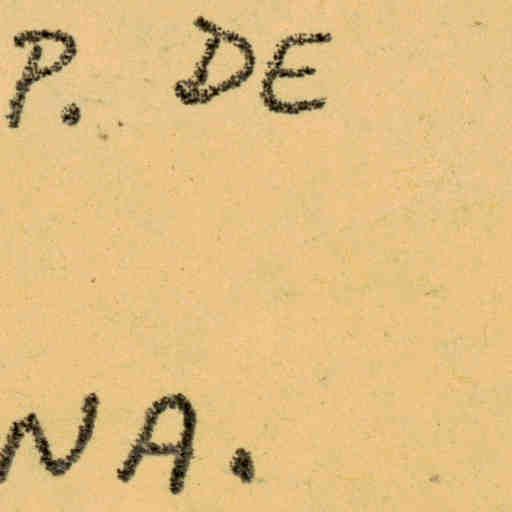 P. DE
NA.